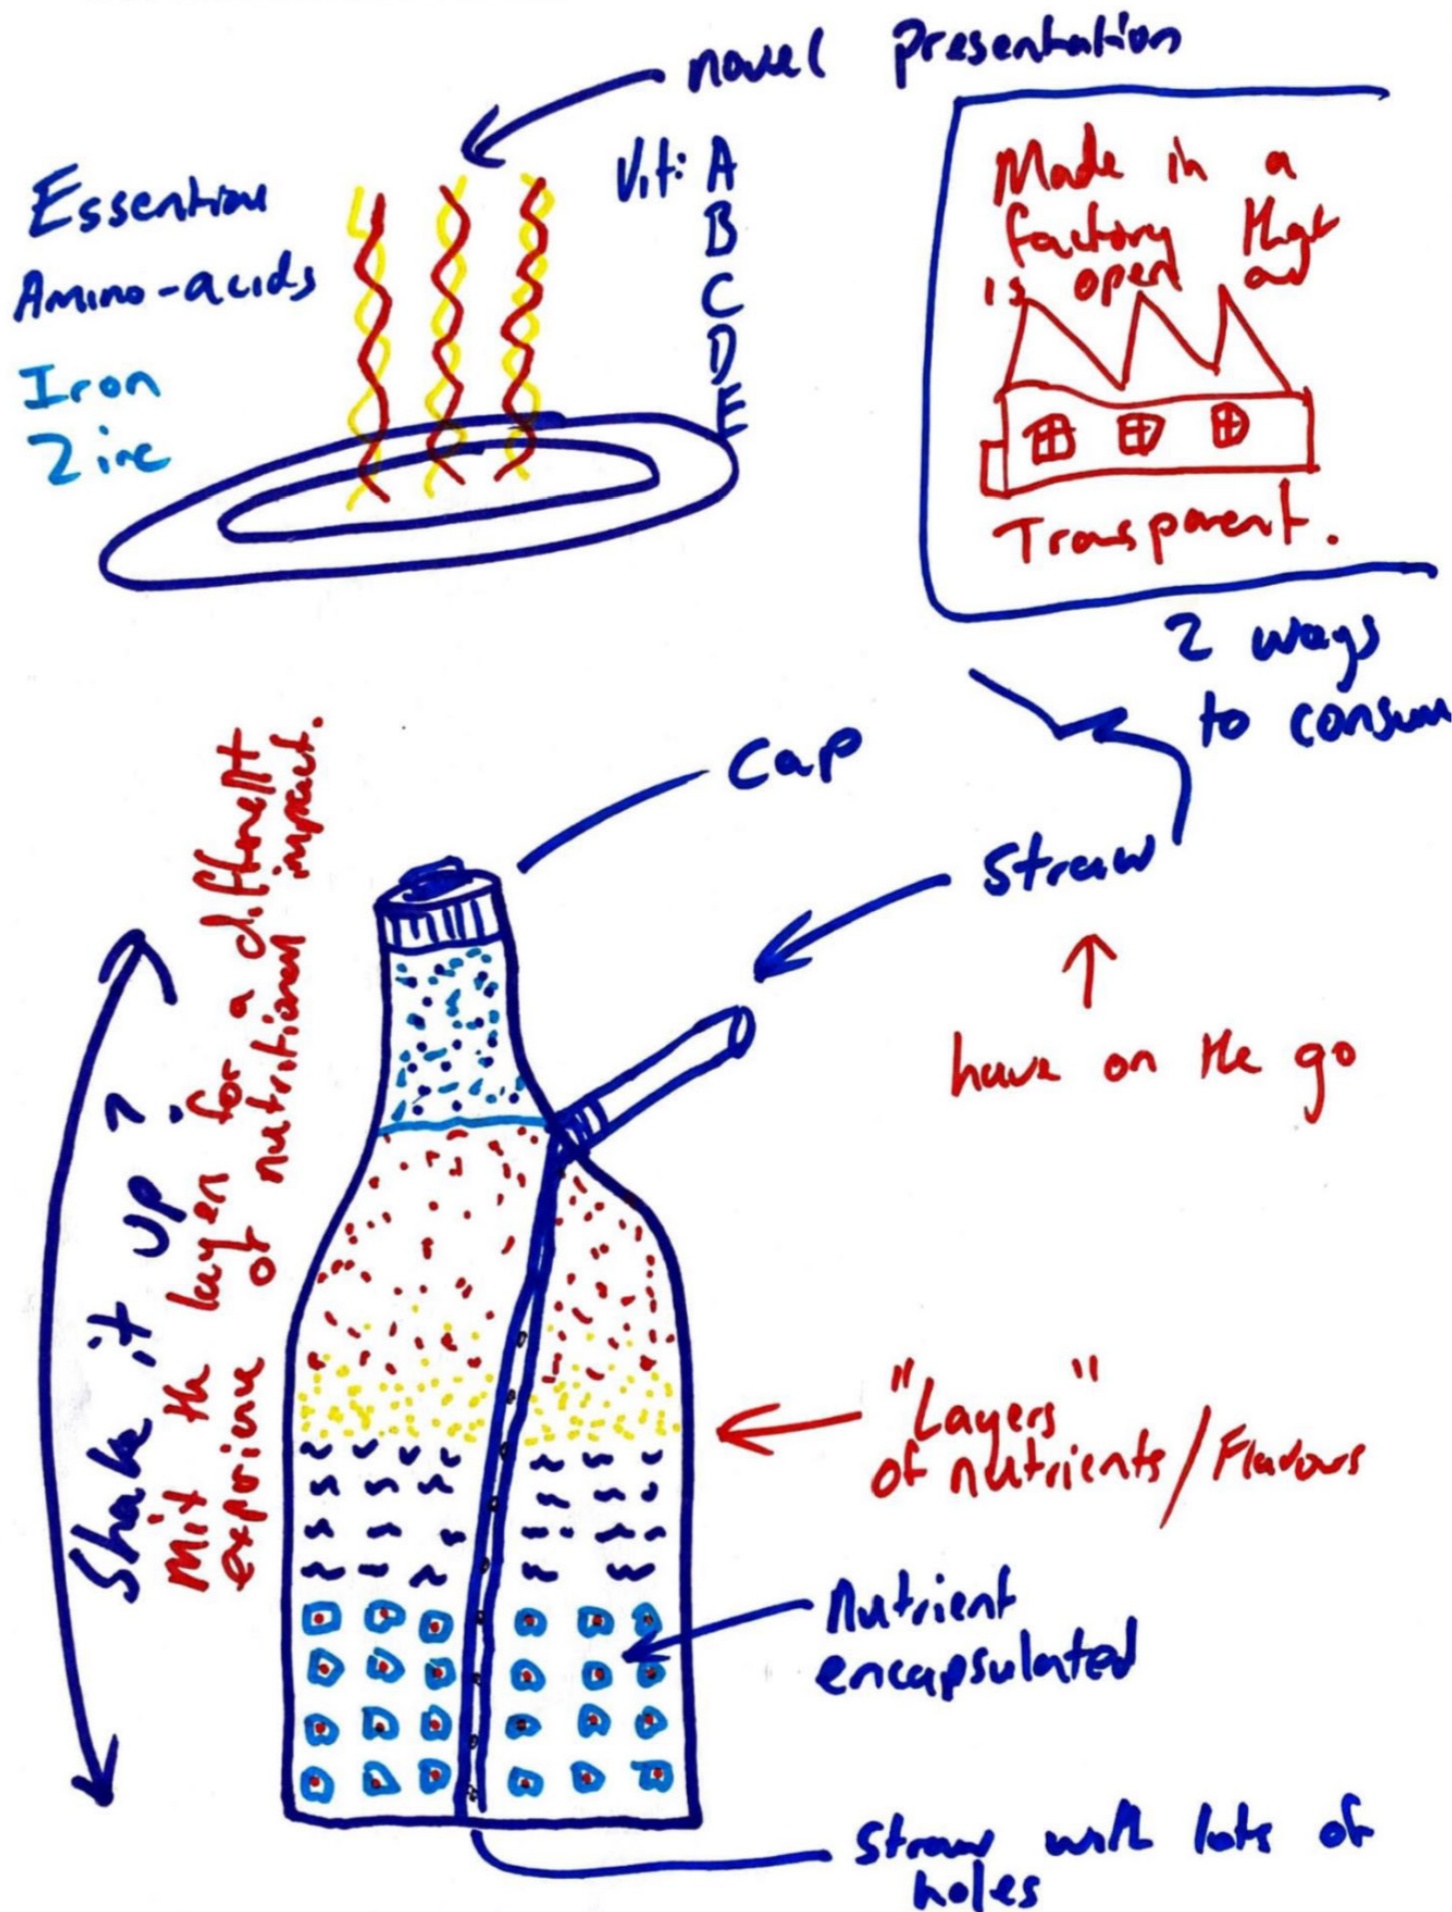 novel presentation
Essential
Amino-acids
Iron
Zinc
Vit: A
B
C
D
E
Made in a
factory that
is open and
Transparent.
2 ways
to consum
Cap
Straw
have on the go
Shake it up?
Mix the layers for a different
experience of nutritional impact.
"Layers"
of nutrients/Flavours
Nutrient
encapsulated
Straw with lots of
holes